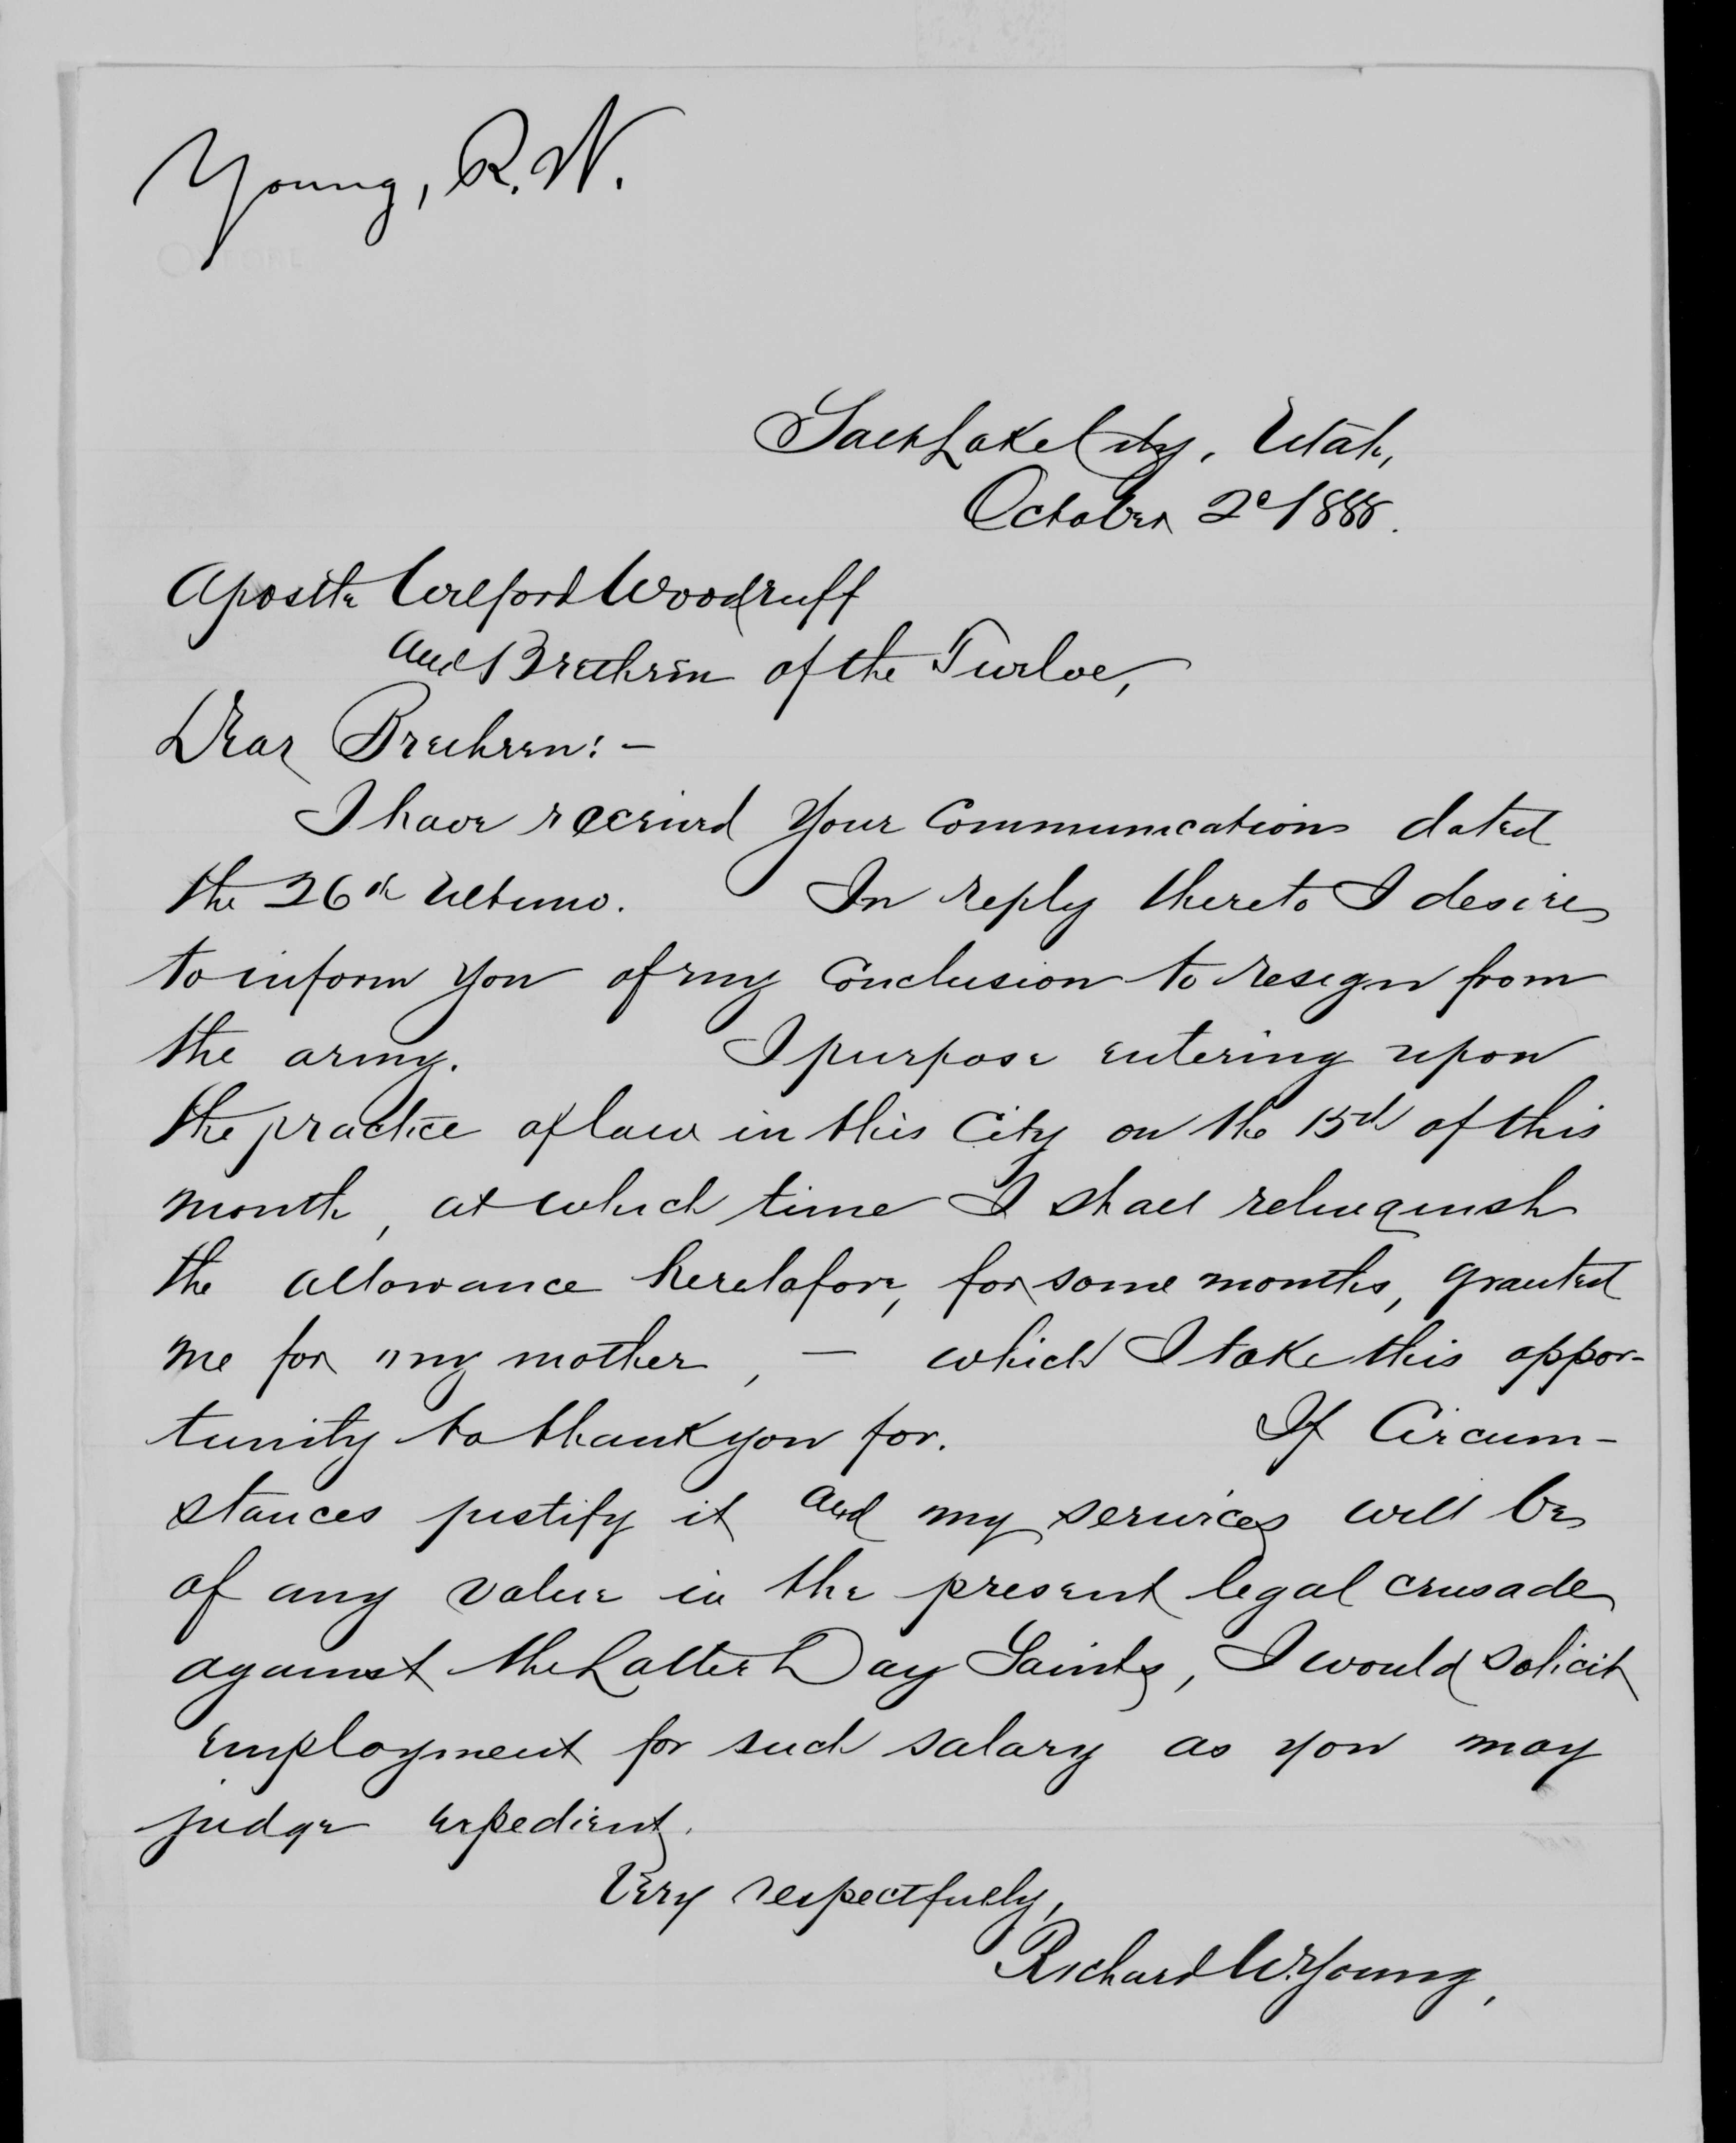 Young, R. W.
Salt Lake City, Utah,
October 2d 1888.
Apostle Wilford Woodruff
and Brethren of the Twelve,
Dear Brethren:—
I have received your communication dated
the 26th ultimo. In reply thereto I desire
to inform you of my conclusion to resign from
the army. I purpose entering upon
the practice of law in this City on the 15th of this
month, at which time I shall relinquish
the allowance heretofore, for some months, granted
me for my mother, — which I take this oppor-
tunity to thank you for. If Circum-
stances justify it and my services will be
of any value in the present legal crusade
against the Latter Day Saints, I would solicit
employment for such salary as you may
judge expedient.
Very respectfully,
Richard W. Young,